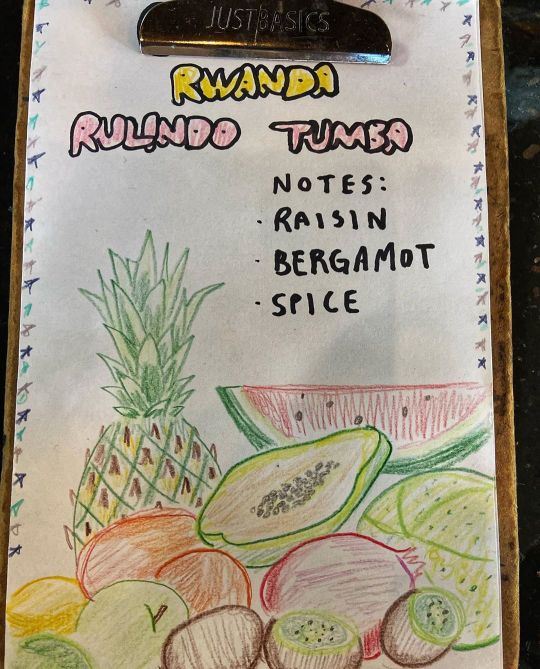 JUST BASICS
RWANDA
RULINDO TUMBA
NOTES:
· RAISIN
· BERGAMOT
· SPICE